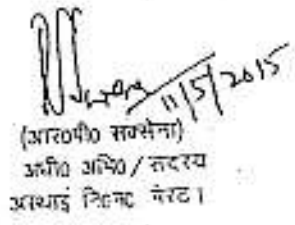 11/5/2015
(आर०पी० सक्सेना)
अधी० अभि०/सदस्य
अस्थाई नि०स० मेरठ।